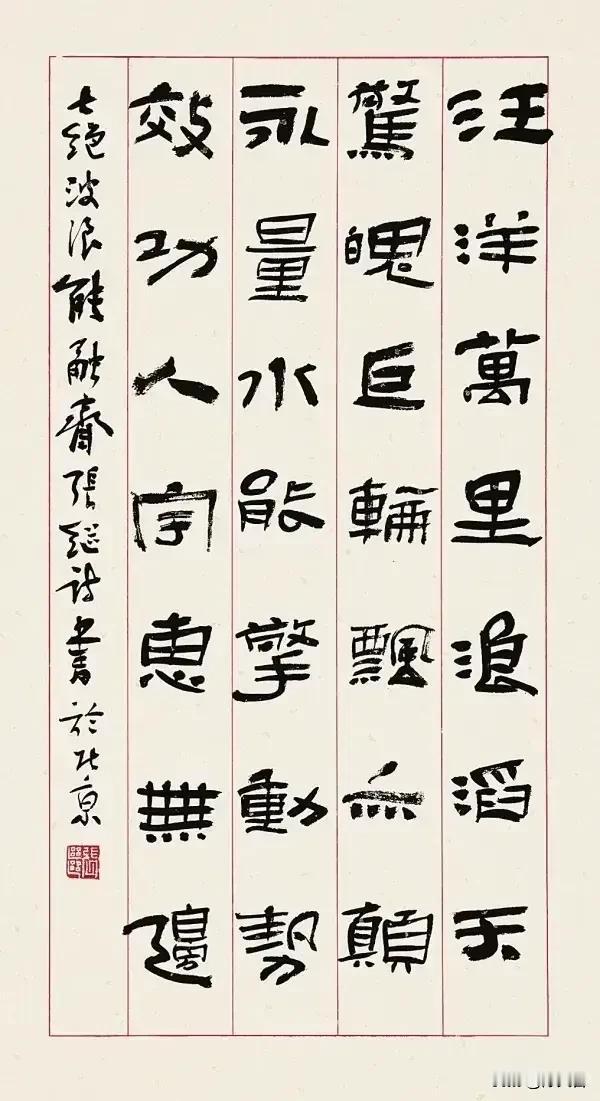 汪洋萬里浪滔天
驚魄巨輪飄亦顛
永量水能擎動勢
效功人宇惠無邊
七絕波浪能融齋張繼詩書於北京